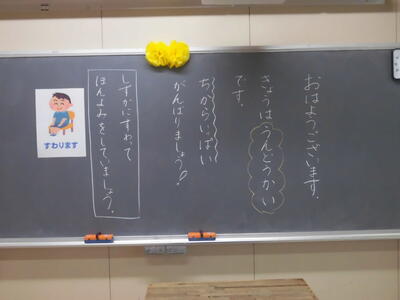 おはようございます。
きょうは、うんどうかい
です。
ちからいっぱい
がんばりましょう!
しずかにすわって
ほんよみをしていましょう。
すわります